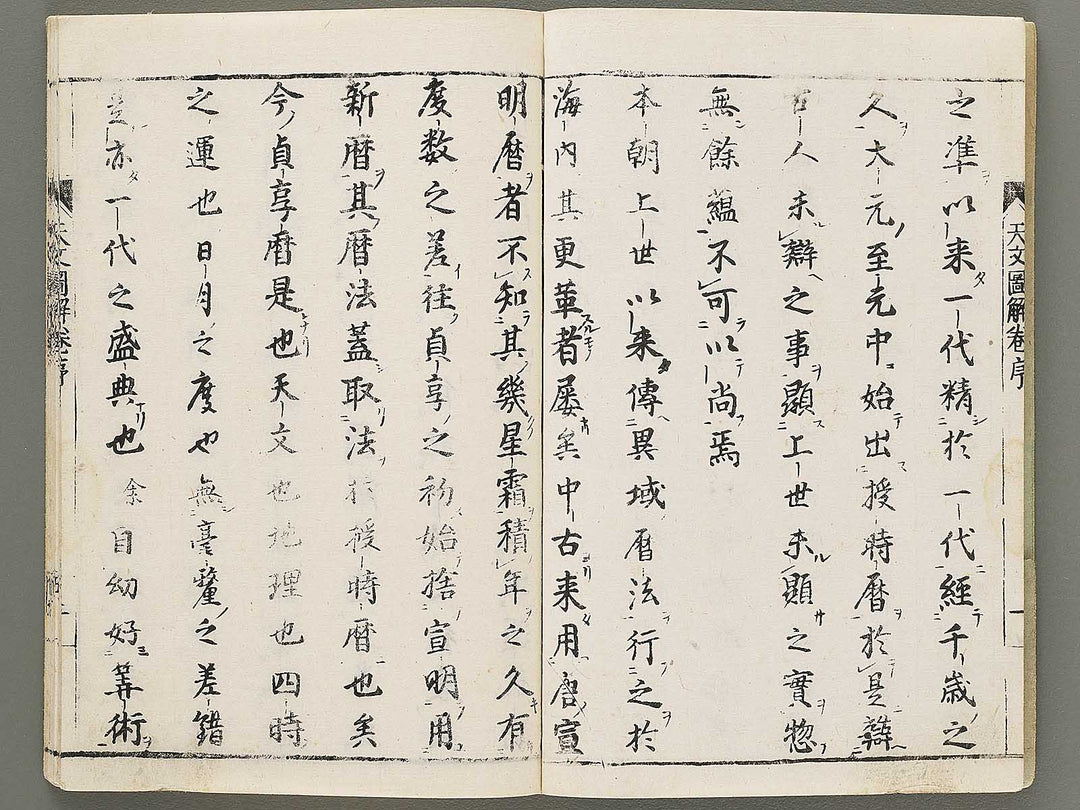 之準以来一代精於一代經千歳之
久大元至元中始出授時暦於是辯
古人未辯之事顯上世未顯之實惣
無餘蘊不可以尚焉
本朝上世以来傳異域暦法行之於
海内其更革者屡矣中古来用唐宣
明暦者不知其幾星霜積年之久有
度数之差往貞享之初始捨宣明用
新暦其暦法蓋取法於授時暦也矣
今貞享暦是也天文也地理也四時
之運也日月之度也無毫釐之差錯
是亦一代之盛典也余自幼好筭術
天文圖解卷序
一
天文圖解卷序